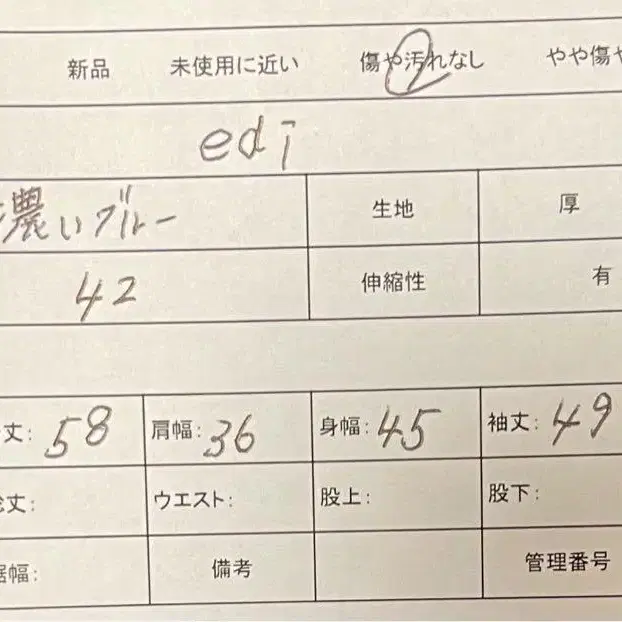 新品 未使用に近い 傷や汚れなし やや傷や
edi
濃いブルー 生地 厚
42 伸縮性 有
丈: 58 肩幅: 36 身幅: 45 袖丈: 49
丈: ウエスト: 股上: 股下:
幅: 備考 管理番号